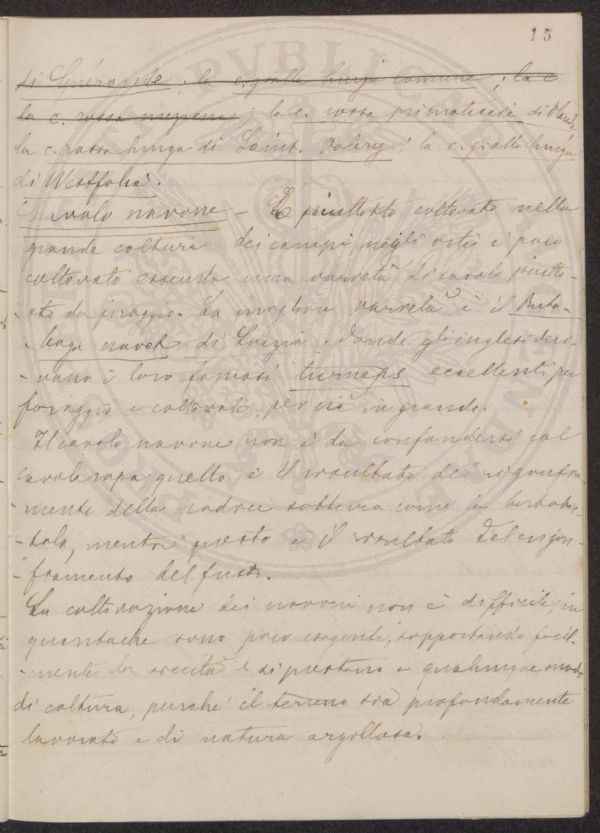 15
di Guérande, la c. gialla lunga comune; la c
la c. rossa mezzana; la c. rossa primaticcia di Olanda
la c. rossa lunga di Saint-Valery; la c. gialla lunga
di Westfalia.
Cavolo navone – È piuttosto coltivato nella
grande coltura dei campi, negli orti è poco
coltivato essendo una varietà di cavolo piutto-
-sto da foraggio. La migliore varietà è il Ruta-
-baga navet di Svezia, donde gli inglesi deri-
-vano i loro famosi turneps eccellenti per
foraggio e coltivati perciò in grande.
Il cavolo navone non è da confondersi col
cavolo rapa; quello è il risultato del rigonfia-
-mento della radice sotterra come la barbabie-
-tola, mentre questo è il risultato del rigon-
-fiamento del fusto.
La coltivazione dei navoni non è difficile in
quantoché sono poco esigenti, sopportando facil-
-mente la siccità e si prestano a qualunque modo
di coltura, purché il terreno sia profondamente
lavorato e di natura argillosa.